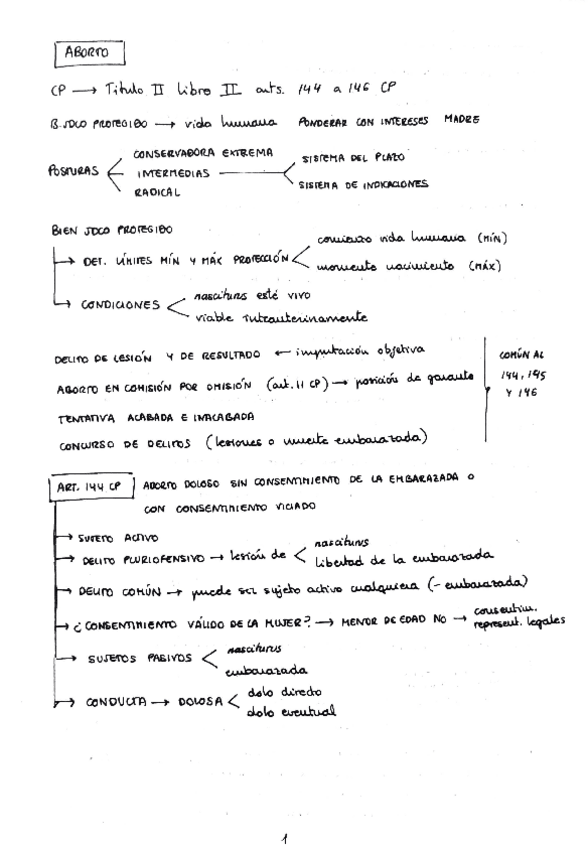 ABORTO
CP → Titulo II Libro II arts. 144 a 146 CP
B. JDCO PROTEGIDO → vida humana PONDERAR CON INTERESES MADRE
POSTURAS
CONSERVADORA EXTREMA
INTERMEDIAS
RADICAL
SISTEMA DEL PLAZO
SISTEMA DE INDICACIONES
BIEN JDCO PROTEGIDO
→ DET. LÍMITES MÍN Y MÁX PROTECCIÓN
comienzo vida humana (MÍN)
momento nacimiento (MÁX)
→ CONDICIONES
nasciturus esté vivo
viable intrauterinamente
DELITO DE LESIÓN Y DE RESULTADO ← imputación objetiva
ABORTO EN COMISIÓN POR OMISIÓN (art. 11 CP) → posición de garante
TENTATIVA ACABADA E INACABADA
CONCURSO DE DELITOS (lesiones o muerte embarazada)
COMÚN AL
144, 145
Y 146
ART. 144 CP ABORTO DOLOSO SIN CONSENTIMIENTO DE LA EMBARAZADA O
CON CONSENTIMIENTO VICIADO
→ SUJETO ACTIVO
→ DELITO PLURIOFENSIVO → lesión de
nasciturus
libertad de la embarazada
→ DELITO COMÚN → puede ser sujeto activo cualquiera (- embarazada)
→ ¿CONSENTIMIENTO VÁLIDO DE LA MUJER? → MENOR DE EDAD NO →
consentim.
represent. legales
→ SUJETOS PASIVOS
nasciturus
embarazada
→ CONDUCTA → DOLOSA
dolo directo
dolo eventual
1